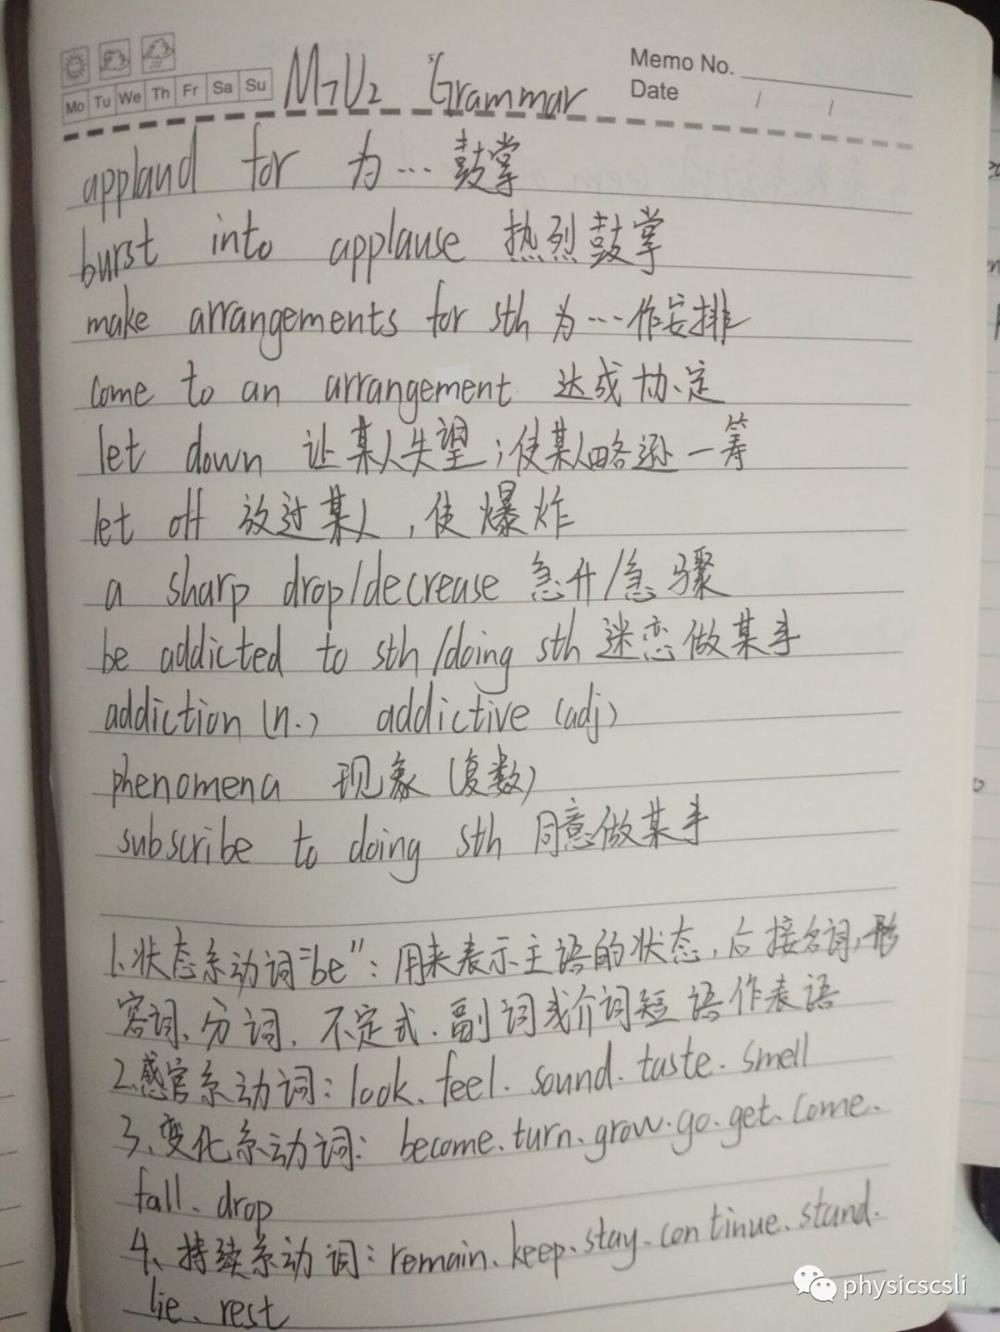 Mo Tu We Th Fr Sa Su
M7U2 Grammar
Memo No.
Date / /
applaud for 为…鼓掌
burst into applause 热烈鼓掌
make arrangements for sth 为…作安排
come to an arrangement 达成协定
let down 让某人失望;使某人略逊一筹
let off 放过某人,使爆炸
a sharp drop/decrease 急升/急骤
be addicted to sth/doing sth 迷恋做某事
addiction (n.) addictive (adj)
phenomena 现象(复数)
subscribe to doing sth 同意做某事
1、状态系动词"be":用来表示主语的状态,后接名词,形
容词、分词、不定式、副词或介词短语作表语
2、感官系动词:look、feel、sound、taste、smell
3、变化系动词:become、turn、grow、go、get、come、
fall、drop
4、持续系动词:remain、keep、stay、continue、stand、
lie、rest
physicscsli